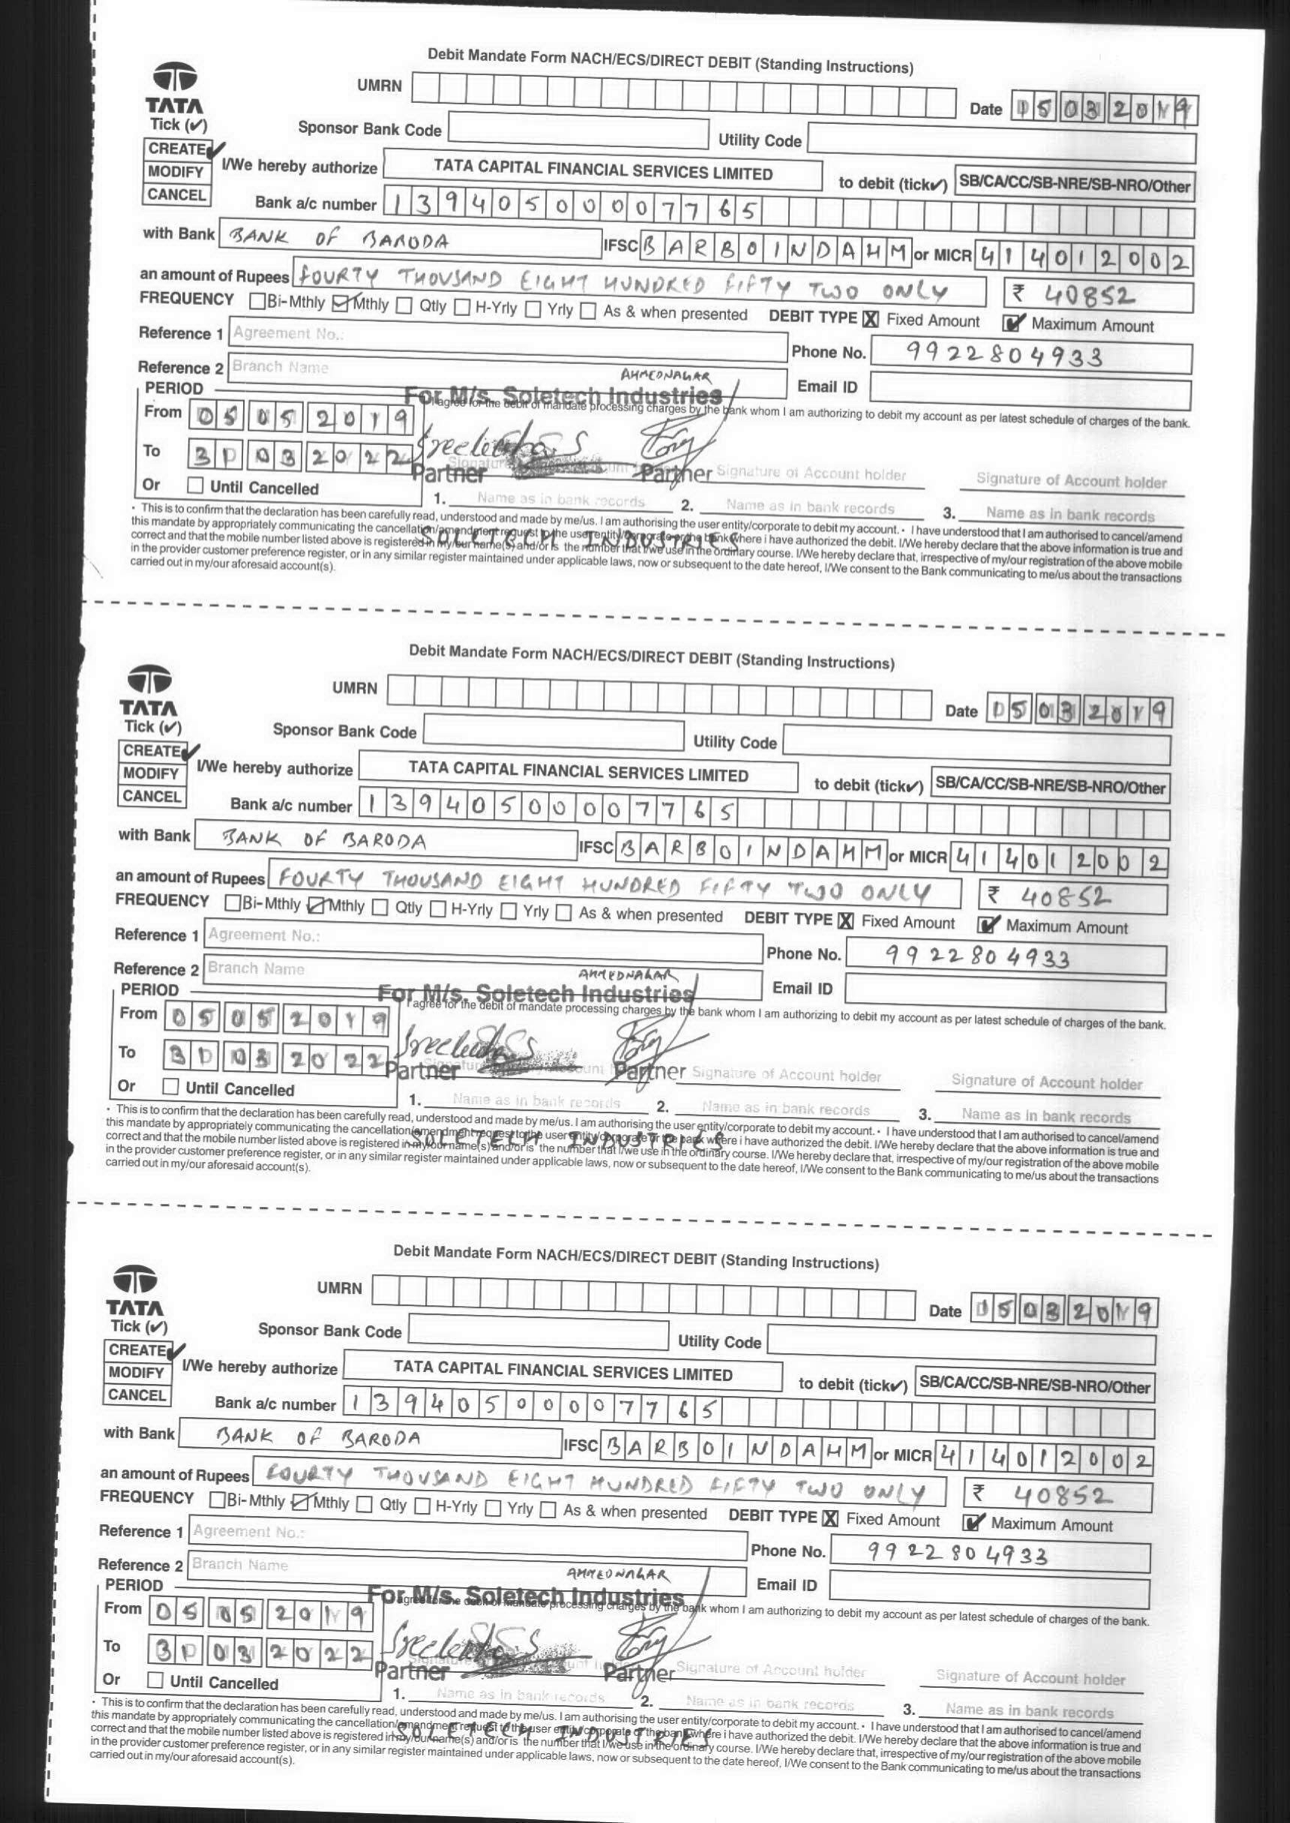 Debit Mandate Form NACH/ECS/DIRECT DEBIT (Standing Instructions)
TATA
UMRN
Date 15032019
Tick (✓)
Sponsor Bank Code Utility Code
CREATE✓
MODIFY
CANCEL
I/We hereby authorize TATA CAPITAL FINANCIAL SERVICES LIMITED to debit (tick✓) SB/CA/CC/SB-NRE/SB-NRO/Other
Bank a/c number 13940500007765
with Bank BANK OF BARODA IFSC BARB0INDAHM or MICR 414012002
an amount of Rupees FOURTY THOUSAND EIGHT HUNDRED FIFTY TWO ONLY ₹ 40852
FREQUENCY Bi-Mthly ✓Mthly Qtly H-Yrly Yrly As & when presented DEBIT TYPE X Fixed Amount ✓ Maximum Amount
Reference 1 Agreement No.: Phone No. 9922804933
Reference 2 Branch Name AHMEDNAGAR Email ID
PERIOD For M/s. Soletech Industries
I agree for the debit of mandate processing charges by the bank whom I am authorizing to debit my account as per latest schedule of charges of the bank.
From 05052019
To 31032022
Partner Partner Signature of Account holder Signature of Account holder
Or Until Cancelled
1. Name as in bank records 2. Name as in bank records 3. Name as in bank records
SOLETECH INDUSTRIES
• This is to confirm that the declaration has been carefully read, understood and made by me/us. I am authorising the user entity/corporate to debit my account. • I have understood that I am authorised to cancel/amend
this mandate by appropriately communicating the cancellation/amendment request to the user entity/corporate or the bank where i have authorized the debit. I/We hereby declare that the above information is true and
correct and that the mobile number listed above is registered in my/our name(s) and/or is the number that I/we use in the ordinary course. I/We hereby declare that, irrespective of my/our registration of the above mobile
in the provider customer preference register, or in any similar register maintained under applicable laws, now or subsequent to the date hereof, I/We consent to the Bank communicating to me/us about the transactions
carried out in my/our aforesaid account(s).
Debit Mandate Form NACH/ECS/DIRECT DEBIT (Standing Instructions)
TATA
UMRN
Date 15032019
Tick (✓)
Sponsor Bank Code Utility Code
CREATE✓
MODIFY
CANCEL
I/We hereby authorize TATA CAPITAL FINANCIAL SERVICES LIMITED to debit (tick✓) SB/CA/CC/SB-NRE/SB-NRO/Other
Bank a/c number 13940500007765
with Bank BANK OF BARODA IFSC BARB0INDAHM or MICR 414012002
an amount of Rupees FOURTY THOUSAND EIGHT HUNDRED FIFTY TWO ONLY ₹ 40852
FREQUENCY Bi-Mthly ✓Mthly Qtly H-Yrly Yrly As & when presented DEBIT TYPE X Fixed Amount ✓ Maximum Amount
Reference 1 Agreement No.: Phone No. 9922804933
Reference 2 Branch Name AHMEDNAGAR Email ID
PERIOD For M/s. Soletech Industries
I agree for the debit of mandate processing charges by the bank whom I am authorizing to debit my account as per latest schedule of charges of the bank.
From 05052019
To 31032022
Partner Partner Signature of Account holder Signature of Account holder
Or Until Cancelled
1. Name as in bank records 2. Name as in bank records 3. Name as in bank records
SOLETECH INDUSTRIES
• This is to confirm that the declaration has been carefully read, understood and made by me/us. I am authorising the user entity/corporate to debit my account. • I have understood that I am authorised to cancel/amend
this mandate by appropriately communicating the cancellation/amendment request to the user entity/corporate or the bank where i have authorized the debit. I/We hereby declare that the above information is true and
correct and that the mobile number listed above is registered in my/our name(s) and/or is the number that I/we use in the ordinary course. I/We hereby declare that, irrespective of my/our registration of the above mobile
in the provider customer preference register, or in any similar register maintained under applicable laws, now or subsequent to the date hereof, I/We consent to the Bank communicating to me/us about the transactions
carried out in my/our aforesaid account(s).
Debit Mandate Form NACH/ECS/DIRECT DEBIT (Standing Instructions)
TATA
UMRN
Date 15032019
Tick (✓)
Sponsor Bank Code Utility Code
CREATE✓
MODIFY
CANCEL
I/We hereby authorize TATA CAPITAL FINANCIAL SERVICES LIMITED to debit (tick✓) SB/CA/CC/SB-NRE/SB-NRO/Other
Bank a/c number 13940500007765
with Bank BANK OF BARODA IFSC BARB0INDAHM or MICR 414012002
an amount of Rupees FOURTY THOUSAND EIGHT HUNDRED FIFTY TWO ONLY ₹ 40852
FREQUENCY Bi-Mthly ✓Mthly Qtly H-Yrly Yrly As & when presented DEBIT TYPE X Fixed Amount ✓ Maximum Amount
Reference 1 Agreement No.: Phone No. 9922804933
Reference 2 Branch Name AHMEDNAGAR Email ID
PERIOD For M/s. Soletech Industries
I agree for the debit of mandate processing charges by the bank whom I am authorizing to debit my account as per latest schedule of charges of the bank.
From 05052019
To 31032022
Partner Partner Signature of Account holder Signature of Account holder
Or Until Cancelled
1. Name as in bank records 2. Name as in bank records 3. Name as in bank records
SOLETECH INDUSTRIES
• This is to confirm that the declaration has been carefully read, understood and made by me/us. I am authorising the user entity/corporate to debit my account. • I have understood that I am authorised to cancel/amend
this mandate by appropriately communicating the cancellation/amendment request to the user entity/corporate or the bank where i have authorized the debit. I/We hereby declare that the above information is true and
correct and that the mobile number listed above is registered in my/our name(s) and/or is the number that I/we use in the ordinary course. I/We hereby declare that, irrespective of my/our registration of the above mobile
in the provider customer preference register, or in any similar register maintained under applicable laws, now or subsequent to the date hereof, I/We consent to the Bank communicating to me/us about the transactions
carried out in my/our aforesaid account(s).